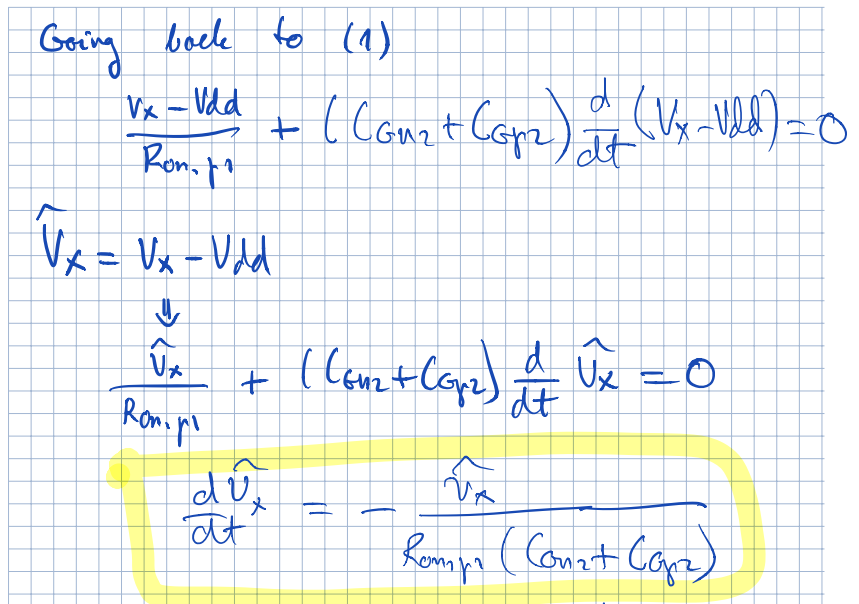 Going back to (1)
\frac{V_x - Vdd}{R_{on,p1}} + (C_{Gn2} + C_{Gp2}) \frac{d}{dt} (V_x - Vdd) = 0
\hat{V}_x = V_x - Vdd
⇓
\frac{\hat{V}_x}{R_{on,p1}} + (C_{Gn2} + C_{Gp2}) \frac{d}{dt} \hat{V}_x = 0
\frac{d\hat{V}_x}{dt} = - \frac{\hat{V}_x}{R_{on,p1} (C_{Gn2} + C_{Gp2})}